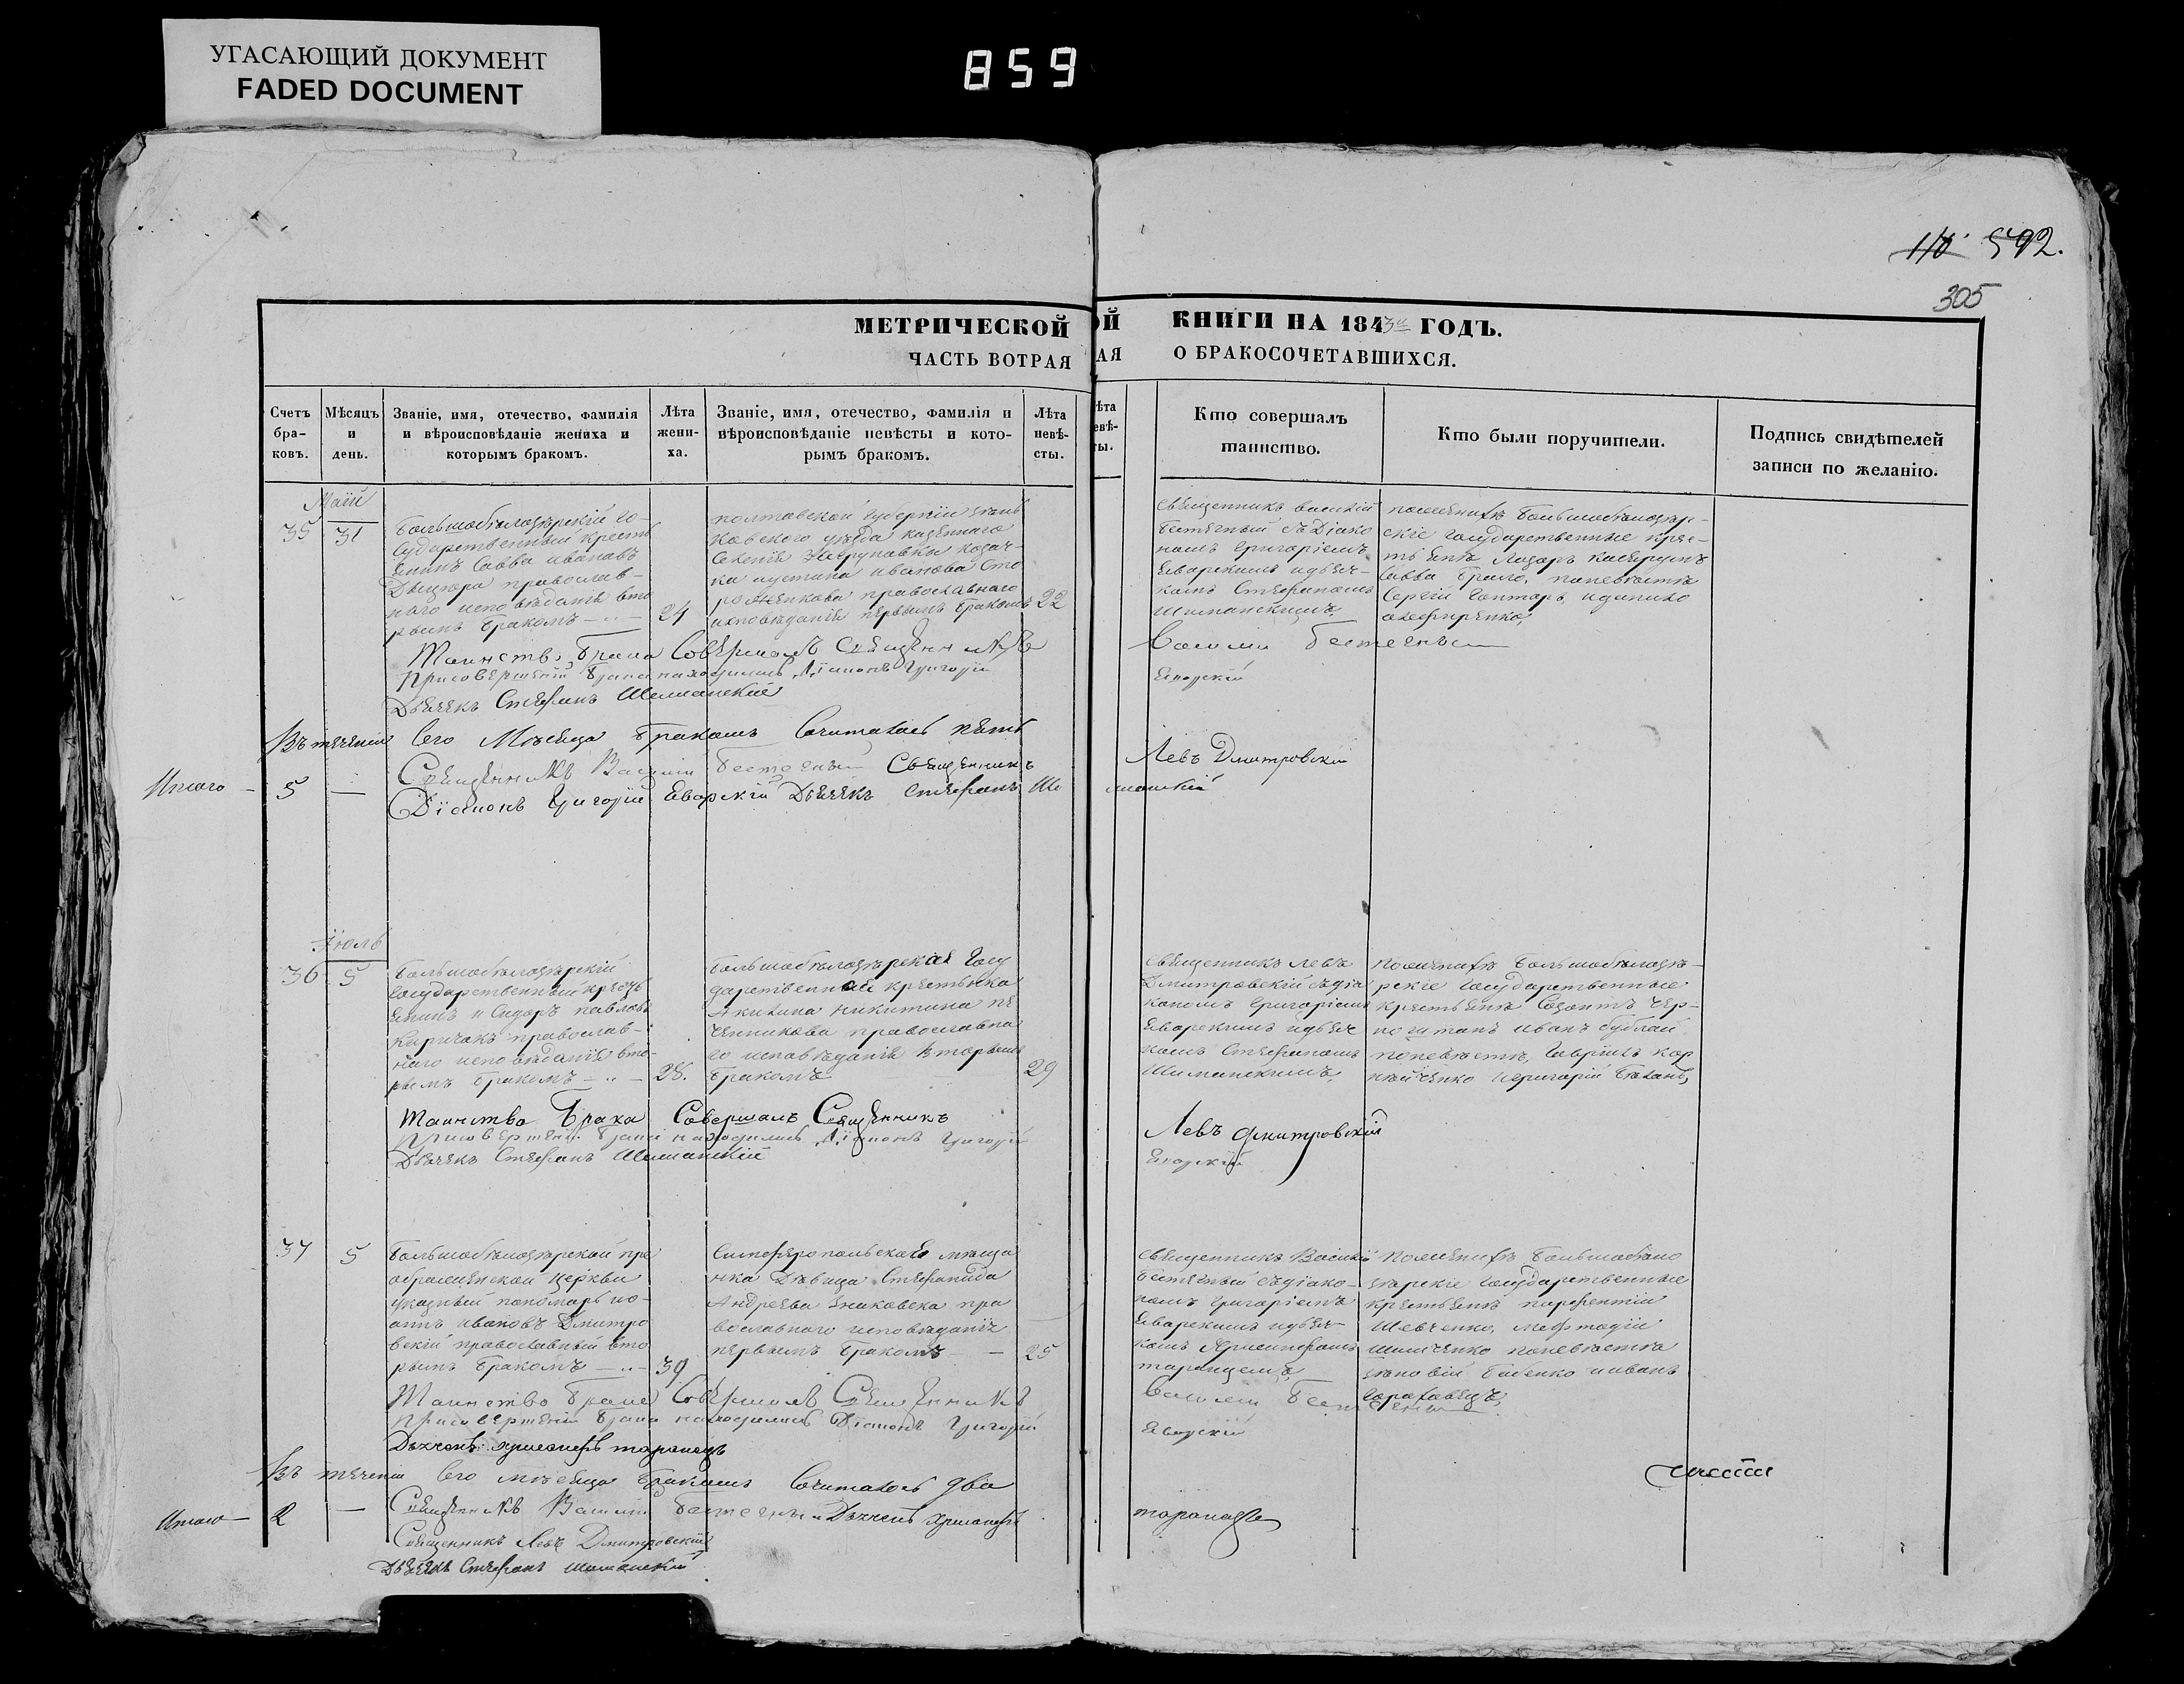 УГАСАЮЩИЙ ДОКУМЕНТ
FADED DOCUMENT
859
110 592.
305
МЕТРИЧЕСКОЙ
ЧАСТЬ ВОТРАЯ
ОЙ КНИГИ НА 1843й ГОДЪ.
АЯ О БРАКОСОЧЕТАВШИХСЯ.
Счетъ бра-ковъ.
Мѣсяцъ и день.
Званіе, имя, отечество, фамилія и вѣроисповѣданіе жениха и которымъ бракомъ.
Лѣта жени-ха.
Званіе, имя, отечество, фамилія и вѣроисповѣданіе невѣсты и кото-рымъ бракомъ.
Лѣта невѣ-сты.
Кто совершалъ таинство.
Кто были поручители.
Подпись свидѣтелей записи по желанію.
Маій
35 31
Большобѣлозѣрскій го-
сударственный кресть
янинъ Савва Ивановъ
православ-
наго исповѣданія вто
рымъ бракомъ — „ —
24
Полтавской губерніи зѣнь
ковского уѣзда казенного
селенія козач-
ка Иустина Иванова Сто
православнаго
исповѣданія первымъ бракомъ
22
Священникъ Василій
Бестечный съ Діако
номъ Григоріемъ
Еварскимъ и дьяч-
комъ Стефаномъ
Шиманскимъ,
по женихѣ Большобѣлозѣр-
скіе государственные крес-
тьяне Лазарь
Савва по невѣстѣ
Сергій Гонтарь, и
Таинство брака совершалъ Священникъ
Василій Бестечный
При совершеніи брака находились Діаконъ Григорій
Еварскій
Дьячекъ Стефанъ Шиманскій
Въ теченіи сего мѣсяца бракомъ сочиталось пять
Священникъ Василій Бестечный Священникъ
Левъ Дмитровскій
Итого — 5 —
Діаконъ Григорій Еварскій Дьячекъ Стефанъ Ши
манскій
Іюль
36 5
Большобѣлозѣрскій
государственный кресть
янинъ Исидоръ Павловъ
Киричокъ православ-
наго исповѣданія вто-
рымъ бракомъ — „ —
28.
Большобѣлозѣрская госу
дарственная крестьянка
Акилина Никитина Пе
ченикова православна
го исповѣданія вторымъ
бракомъ
29
Священникъ Левъ
Дмитровскій съ діа
кономъ Григоріемъ
Еварскимъ и дьяч
комъ Стефаномъ
Шиманскимъ,
по женихѣ Большобѣлозѣ-
рскіе государственные
крестьяне Созонтъ Чер-
ноштанъ Иванъ Бублай
по невѣстѣ, Гаврiилъ Кор
нѣйченко и Григорій
Таинство Брака Совершалъ Священникъ
Левъ Дмитровскій
При совершеніи брака находились Діаконъ Григорій
Еварскій
Дьячекъ Стефанъ Шиманскій
37 5
Большобѣлозѣрской пре
ображенской церкви
указный пономарь Iо-
аннъ Ивановъ Дмитро
вскій православный вто
рымъ бракомъ — „ —
39
Симферопольская мѣща
нка Дѣвица Стефанида
Андреева пра
вославнаго исповѣданія
первымъ бракомъ —
25
Священникъ Василій
Бестечный съ діако-
номъ Григоріемъ
Еварскимъ и дьяч-
комъ Хрисанфомъ
таранцемъ
по женихѣ Большобѣло
зѣрскіе государственные
крестьяне Парфентій
Шевченко, Мефтодій
Шимченко по невѣстѣ
Зѣновій Бабенко и Иванъ
Гороховецъ,
Таинство брака совершалъ Священникъ
Василій Бестечный
При совершеніи брака находились Діаконъ Григорій
Еварскій
Дьячекъ Хрисанфъ таранецъ
Въ теченіи сего мѣсяца бракомъ сочиталось два
Итого — 2 —
Священникъ Василій Бестечный Дьячекъ Хрисанфъ
таранецъ
Священникъ Левъ Дмитровскій
Дьячекъ Стефанъ Шиманскій